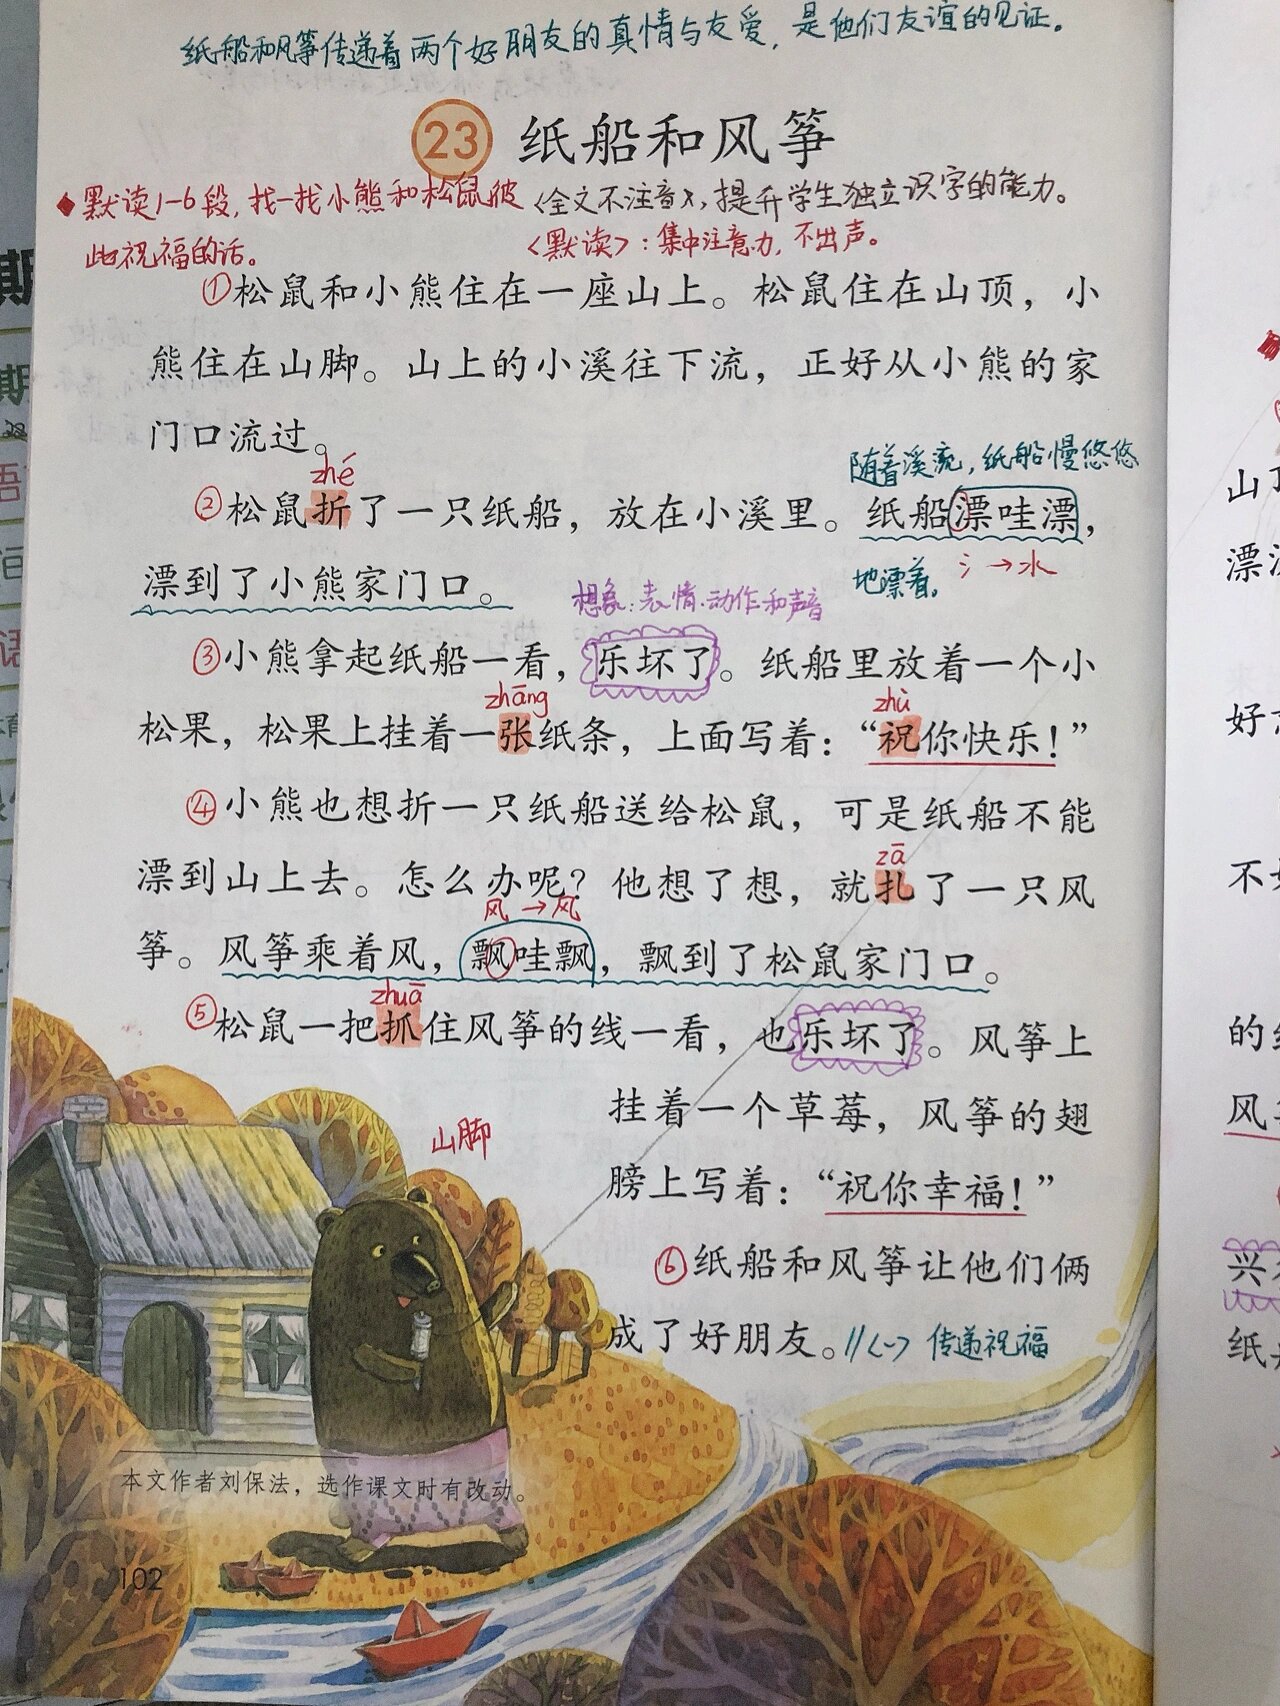 纸船和风筝传递着两个好朋友的真情与友爱，是他们友谊的见证。
23 纸船和风筝
◆默读1-6段，找一找小熊和松鼠彼
此祝福的话。
〈全文不注音〉，提升学生独立识字的能力。
〈默读〉：集中注意力，不出声。
①松鼠和小熊住在一座山上。松鼠住在山顶，小
熊住在山脚。山上的小溪往下流，正好从小熊的家
门口流过。
随着溪流，纸船慢悠悠
zhé
②松鼠折了一只纸船，放在小溪里。纸船漂哇漂，
地漂着。
氵→水
漂到了小熊家门口。
想象：表情、动作和声音
③小熊拿起纸船一看，乐坏了。纸船里放着一个小
zhāng
zhù
松果，松果上挂着一张纸条，上面写着：“祝你快乐！”
④小熊也想折一只纸船送给松鼠，可是纸船不能
zā
漂到山上去。怎么办呢？他想了想，就扎了一只风
风→风
筝。风筝乘着风，飘哇飘，飘到了松鼠家门口。
zhuā
⑤松鼠一把抓住风筝的线一看，也乐坏了。风筝上
挂着一个草莓，风筝的翅
山脚
膀上写着：“祝你幸福！”
⑥纸船和风筝让他们俩
成了好朋友。//〈一〉传递祝福
本文作者刘保法，选作课文时有改动。
102
山丁
好
的
风
兴
纸